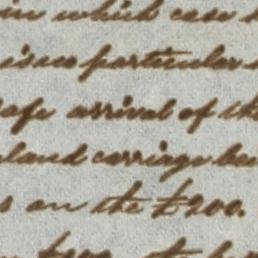 in which case
particular
safe arrival of the
land carriage
on the £200.